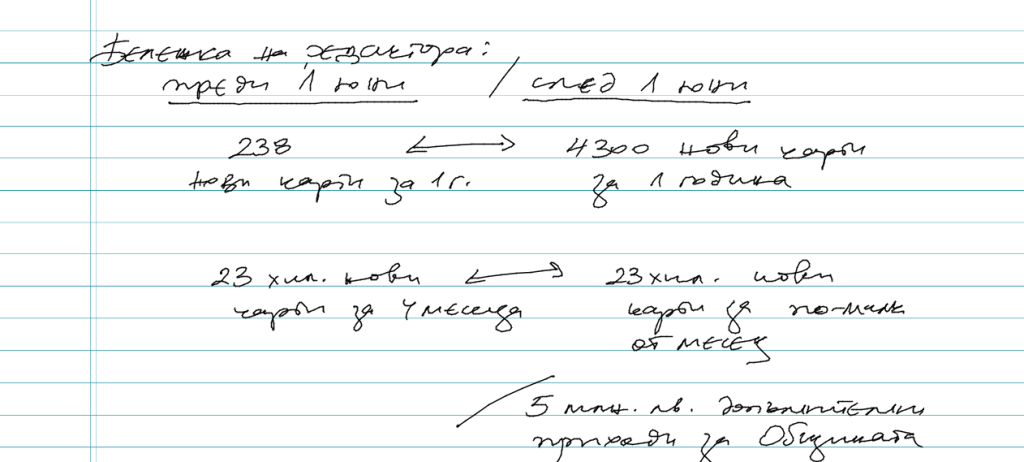 Бележка на редактора:
преди 1 юни / след 1 юни
238 ↔ 4300 нови карти
нови карти за 1 г. за 1 година
23 хил. нови ↔ 23 хил. нови
карти за 4 месеца карти за по-малк
от месец
5 млн. лв. допълнителни
приходи за Общината